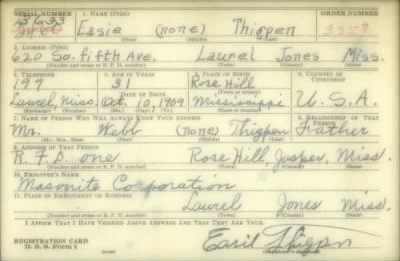 SERIAL NUMBER 1. NAME (Print) ORDER NUMBER
Essie (none) Thigpen
2. ADDRESS (Print)
620 So. fifth Ave. Laurel Jones Miss.
(Number and street or R. F. D. number) (Town) (County) (State)
3. TELEPHONE 4. AGE IN YEARS 5. PLACE OF BIRTH 6. COUNTRY OF CITIZENSHIP
199 31 Rose Hill
DATE OF BIRTH (Town or county)
Laurel, Miss. Oct. 10, 1909 Mississippi U.S.A.
7. NAME OF PERSON WHO WILL ALWAYS KNOW YOUR ADDRESS 8. RELATIONSHIP OF THAT PERSON
Mr. Webb (none) Thigpen Father
9. ADDRESS OF THAT PERSON
R. F. D. one Rose Hill, Jasper, Miss.
(Number and street or R. F. D. number) (Town) (County) (State)
10. EMPLOYER'S NAME
Masonite Corporation
11. PLACE OF EMPLOYMENT OR BUSINESS
Laurel Jones Miss.
(Number and street or R. F. D. number) (Town) (County) (State)
I AFFIRM THAT I HAVE VERIFIED ABOVE ANSWERS AND THAT THEY ARE TRUE.
REGISTRATION CARD
D. S. S. Form 1